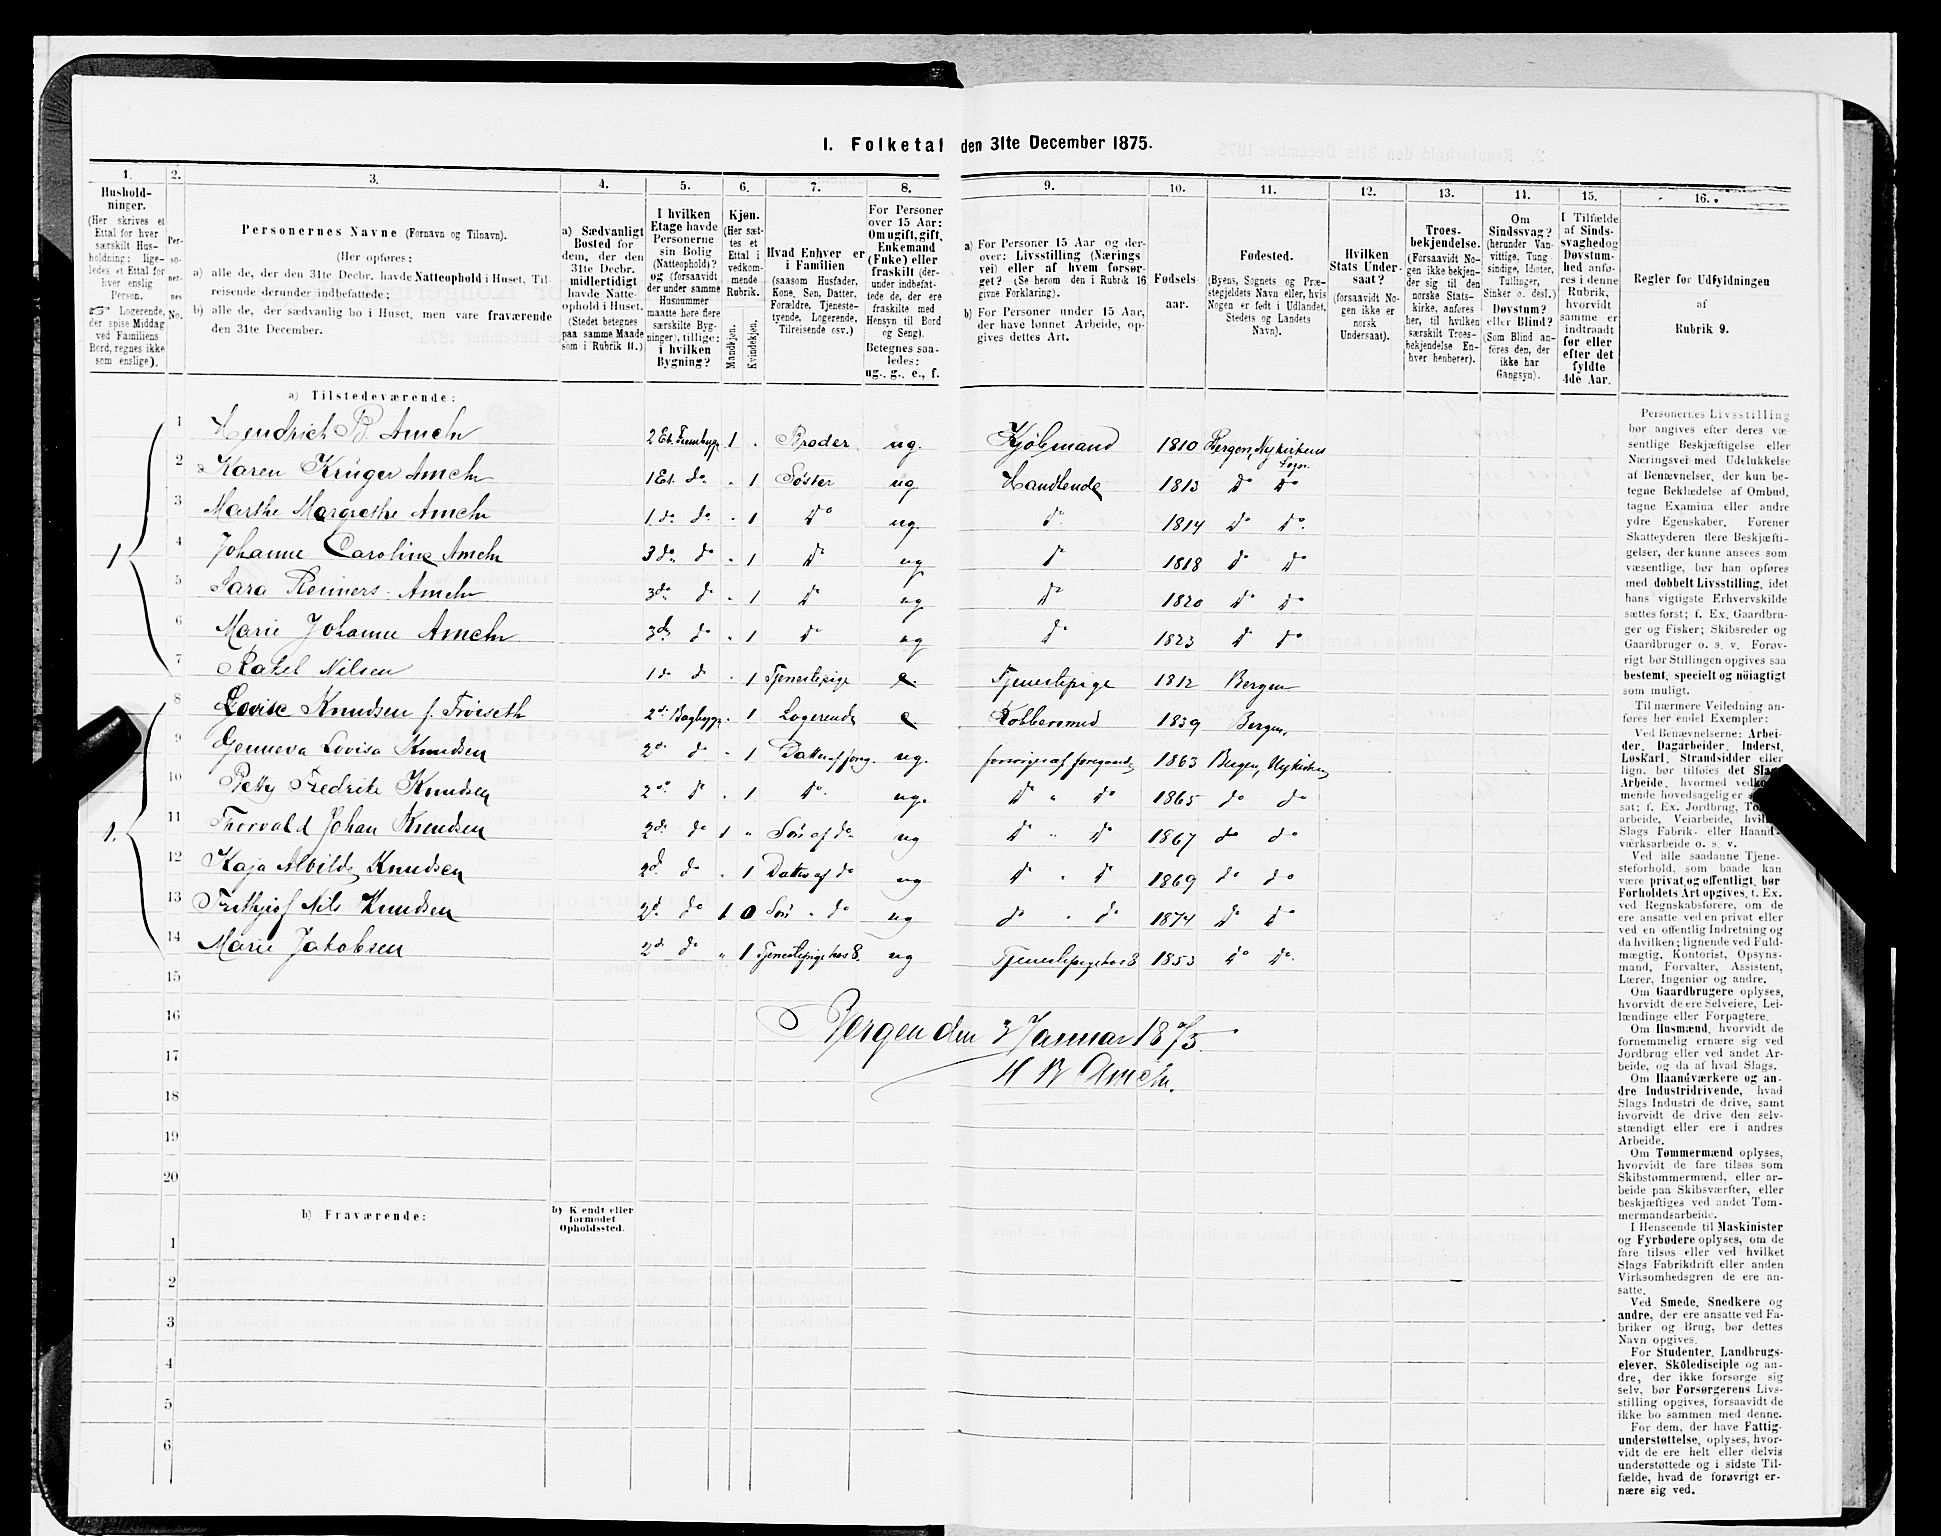 1. Folketal den 31te December 1875.
1. 2. 3. 4. 5. 6. 7. 8. 9. 10. 11. 12. 13. 14. 15. 16.
Hushold-
ninger.
(Her skrives et
Ettal for hver
særskilt Hus-
holdning: lige-
ledes et Ettal for
hver enslig
Person.
☞ Logerende,
der spise Middag
ved Familiens
Bord, regnes ikke
som enslige).
Per-
so-
ner-
nes
No.
Personernes Navne (Fornavn og Tilnavn).
(Her opføres:
a) alle de, der den 31te Decbr. havde Natteophold i Huset, Til-
reisende derunder indbefattede;
b) alle de, der sædvanlig bo i Huset, men vare fraværende
den 31te December.
a) Sædvanligt
Bosted for
dem, der den
31te Decbr.
midlertidigt
havde Natte-
ophold i Huset.
(Stedet betegnes
paa samme Maade
som i Rubrik 11.)
I hvilken
Etage havde
Personerne
sin Bolig
(Natteophold)?
og (forsaavidt
der under samme
Husnummer
maatte høre flere
særskilte Byg-
ninger), tillige:
i hvilken
Bygning?
Kjøn.
(Her sæt-
tes et
Ettal i
vedkom-
mende
Rubrik.
Mandkjøn.
Kvindekjøn.
Hvad Enhver er
i Familien
(saasom Husfader,
Kone, Søn, Datter,
Forældre, Tjeneste-
tyende, Logerende,
Tilreisende osv.)
For Personer
over 15 Aar:
Om ugift, gift,
Enkemand
(Enke) eller
fraskilt (der-
under indbefat-
tede de, der ere
fraskilte med
Hensyn til Bord
og Seng).
Betegnes saa-
ledes:
ug., g., e., f.
a) For Personer 15 Aar og der-
over: Livsstilling (Nærings
vei) eller af hvem forsør-
get? (Se herom den i Rubrik 16
givne Forklaring).
b) For Personer under 15 Aar,
der have lønnet Arbeide, op-
gives dettes Art.
Fødsels-
aar.
Fødested.
(Byens, Sognets og Præ-
stegjeldets Navn eller, hvis
Nogen er født i Udlandet,
Stedets og Landets
Navn).
Hvilken
Stats Under-
saat?
(forsaavidt No-
gen ikke er
norsk
Undersaat).
Troes-
bekjendelse.
(Forsaavidt No-
gen ikke bekjen-
der sig til den
norske Stats-
kirke, anføres
her, til hvilken
særskilt Troes-
bekjendelse En-
hver henhører).
Om
Sindssvag?
(herunder Van-
vittige, Tung-
sindige, Idioter,
Tullinger,
Sinker o. desl.)
Døvstum?
eller Blind?
(Som Blind an-
føres den, der
ikke har
Gangsyn).
I Tilfælde
af Sinds-
svaghed og
Døvstum-
hed anfø-
res i denne
Rubrik,
hvorvidt
samme er
indtraadt
før eller
efter det
fyldte
4de Aar.
Regler for Udfyldningen
af
Rubrik 9.
a) Tilstedeværende:
1 Hendrich B. Ameln 2 Et. 1 Broder ug. Kjøbmand 1810 Bergen, Nykirkens Sogn.
2 Karen Krüger Ameln 1 Et. do 1 Søster ug. Handlende 1813 do do
3 Marthe Margrethe Ameln 1 do do 1 do ug do 1814 do do
4 Johanne Caroline Ameln 3 do do 1 do ug do 1818 do do
5 Sara Reimers Ameln 3 do do 1 do ug do 1820 do do
6 Marie Johanne Ameln 3 do do 1 do ug do 1823 do do
7 Rakel Nilsen 1 do do 1 Tjenestepige e. Tjenestepige 1812 Bergen
1
8 Lovise Knudsen f. Trøiseth 2 do Bagbygg. 1 Logerende e. Kobbersmed 1839 Bergen,
9 Genneva Lovisa Knudsen 2 do do 1 Datter af foreg. ug. forsørges af foregaaende 1863 Bergen, Nykirken
10 Petty Fredrike Knudsen 2 do do 1 do ug. do " do 1865 do do
11 Thorvald Johan Knudsen 2 do do 1 " Søn af do ug do " do 1867 do do
12 Kaja Alvilde Knudsen 2 do do 1 Datter af do ug do " do 1869 do do
13 Frithjof Nils Knudsen 2 do do 1 0 Søn " do ug do " do 1874 do do
14 Marie Jakobsen 2 do do " 1 Tjenestepige hos 8. ug Tjenestepige hos 8 1853 do do
1.
15
16
Bergen den 3 Januar 18
17
H B Ameln.
18
19
20
b) Fraværende:
b) Kjendt eller
formodet
Opholdssted.
1
2
3
4
5
6
Personernes Livsstilling
bør angives efter deres væ-
sentlige Beskjæftigelse eller
Næringsvei med Udelukkelse
af Benævnelser, der kun be-
tegne Beklædelse af Ombud,
tagne Examina eller andre
ydre Egenskaber. Forener
Skatteyderen flere Beskjæfti-
gelser, der kunne ansees som
væsentlige, bør han opføres
med dobbelt Livsstilling, idet
hans vigtigste Erhvervskilde
sættes først; f. Ex. Gaardbru-
ger og Fisker; Skibsreder og
Gaardbruger o. s. v. Forøv-
rigt bør Stillingen opgives saa
bestemt, specielt og nøiagtigt
som muligt.
Til nærmere Veiledning an-
føres her endel Exempler:
Ved Benævnelserne: Arbei-
der, Dagarbeider, Inderst,
Løskarl, Strandsidder eller
lign. bør tilføies det Slags
Arbeide, hvormed vedkom-
mende hovedsagelig er
sat; f. Ex. Jordbrug,
arbeide, Veiarbeide,
Slags Fabrik- eller Haand-
værksarbeide o. s. v.
Ved alle saadanne Tjene-
steforhold, som baade kan
være privat og offentligt, bør
Forholdets Art opgives, t. Ex.
ved Regnskabsførere, om de
ere ansatte ved en privat eller
ved en offentlig Indretning og
da hvilken; lignende ved Fuld-
mægtig, Kontorist, Opsyns-
mand, Forvalter, Assistent,
Lærer, Ingeniør og andre.
Om Gaardbrugere oplyses,
hvorvidt de ere Selveiere, Lei-
lændinge eller Forpagtere.
Om Husmænd, hvorvidt de
fornemmelig ernære sig ved
Jordbrug eller ved andet Ar-
beide, og da af hvad Slags.
Om Haandværkere og an-
dre Industridrivende, hvad
Slags Industri de drive, samt
hvorvidt de drive den selv-
stændigt eller ere i andres
Arbeide.
Om Tømmermænd oplyses,
hvorvidt de fare tilsøs som
Skibstømmermænd, eller ar-
beide paa Skibsværfter, eller
beskjæftiges ved andet Tøm-
mermandsarbeide.
I Henseende til Maskinister
og Fyrbødere oplyses, om de
fare tilsøs eller ved hvilket
Slags Fabrikdrift eller anden
Virksomhedsgren de ere an-
satte.
Ved Smede, Snedkere og
andre, der ere ansatte ved Fa-
briker og Brug, bør dettes
Navn opgives.
For Studenter, Landbrugs-
elever, Skoledisciple og an-
dre, der ikke forsørge sig
selv, bør Forsørgerens Livs-
stilling opgives, forsaavidt de
ikke bo sammen med denne.
For dem, der have Fattig-
understøttelse, oplyses, hvor-
vidt de ere helt eller delvis
understøttede og i sidste Til-
fælde, hvad de forøvrigt er-
nære sig ved.